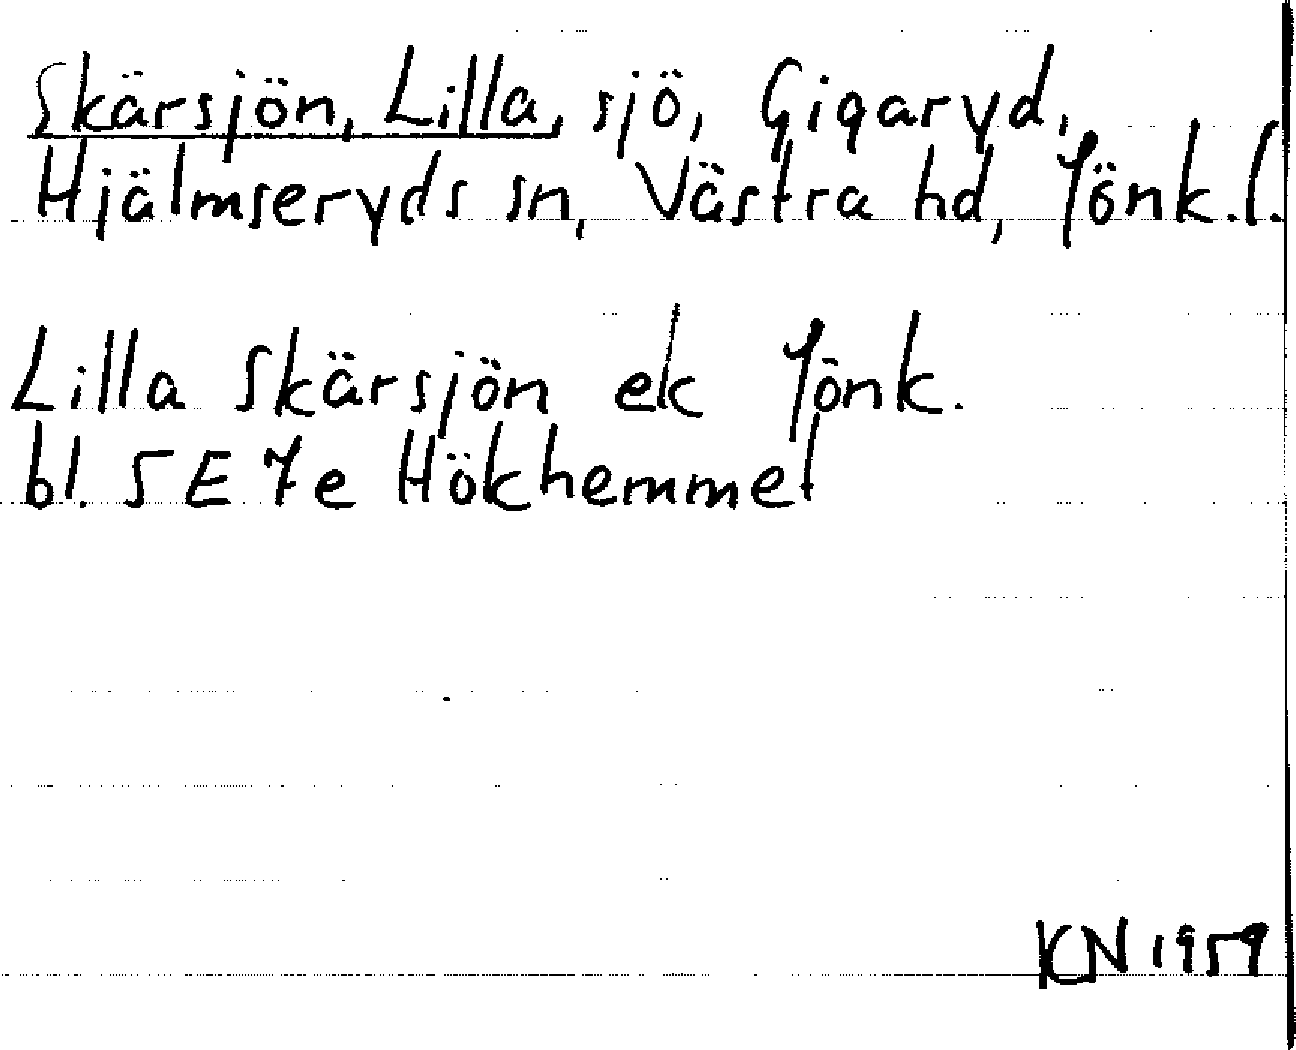 Skärsjön, Lilla, sjö, Gigaryd,
Hjälmseryds sn, Västra hd, Jönk.l.
Lilla Skärsjön ek Jönk.
bl. 5 E 7 e Hökhemmet
KN 1959